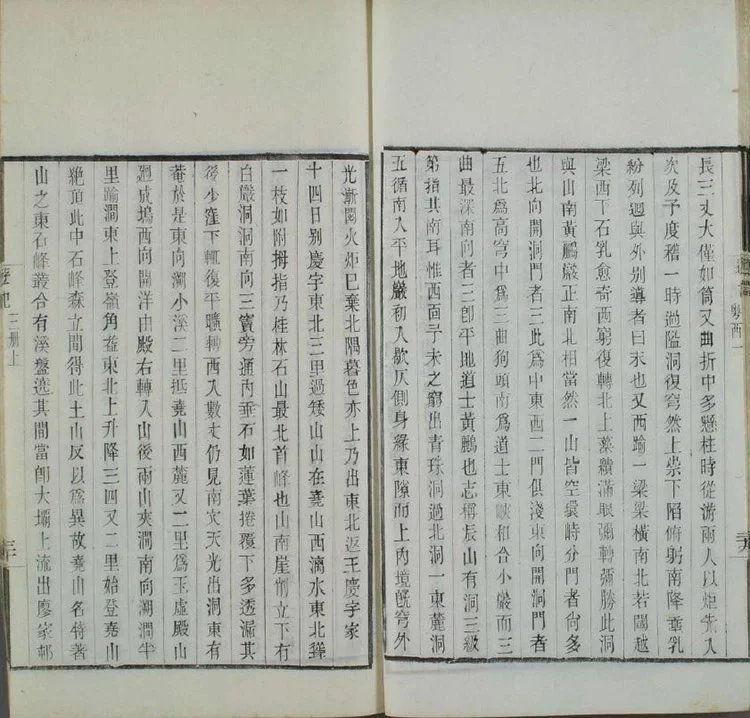 長三丈大僅如筒又曲折中多懸柱時從游兩人以炬先入
次及予度稽一時過隘洞復穹然上崇下陷俯躬南降垂乳
紛列迥與外別導者曰未也又西踰一梁梁橫南北若閾越
梁西下石乳愈奇西窮復轉北上叢繢滿眼彌轉彌勝此洞
與山南黃鸝巖正南北相當然一山皆空裊峙分門者尚多
也北向開洞門者三此爲中東西二門俱淺東向開洞門者
五北爲高穹中爲三曲狗頭南爲道士東峽和合小巖而三
曲最深南向者三卽平地道士黃鸝也志稱辰山有洞三級
第指其南耳惟西面予未之窮出青珠洞過北洞一東麓洞
五循南入平地巖初入欹仄側身緣東隙而上內境旣穹外
光漸閟火炬已棄北隅暮色亦上乃出東北返王慶宇家
十四日別慶宇東北三里過矮山山在堯山西漓水東北聳
一枝如附拇指乃桂林石山最北首峰也山南崖削立下有
白巖洞洞南向三竇旁通內垂石如蓮葉捲覆下多透漏其
後少窪下輒復平曠轉西入數丈仍見南穴天光出洞東有
菴於是東向小溪二里抵堯山西麓又二里爲玉虛殿山
廻成塢西向開洋由殿右轉入山後兩山夾澗南向溯澗半
里踰澗東上登嶺角益東北上升降三四又二里始登堯山
絕頂此中石峰森立間得此土山反以爲異故堯山名特著
山之東石峰叢合有溪盤遶其間當卽大壩上流出廖家邨
遊記 三册上